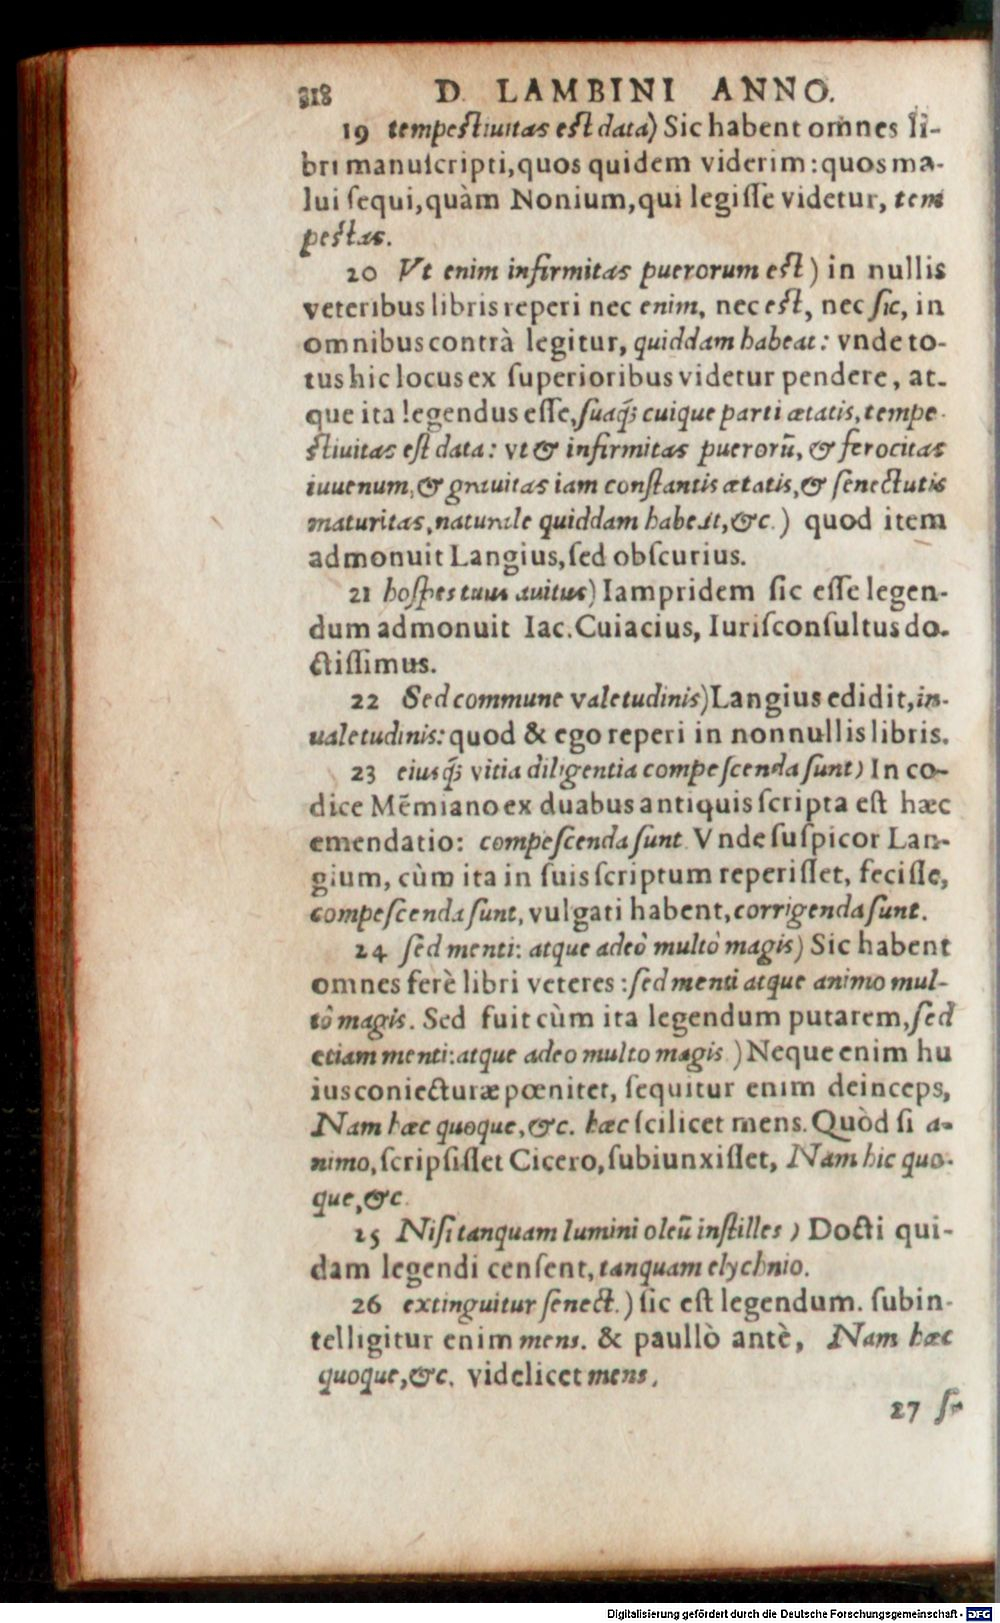 318 D. LAMBINI ANNO.
19 tempestiuitas est data) Sic habent omnes li-
bri manuscripti, quos quidem viderim: quos ma-
lui sequi, quàm Nonium, qui legisse videtur, tem
pestas.
20 Vt enim infirmitas puerorum est) in nullis
veteribus libris reperi nec enim, nec est, nec sic, in
omnibus contrà legitur, quiddam habeat: vnde to-
tus hic locus ex superioribus videtur pendere, at-
que ita legendus esse, suaq; cuique parti ætatis, tempe-
stiuitas est data: vt & infirmitas puerorū, & ferocitas
iuuenum, & grauitas iam constantis ætatis, & senectutis
maturitas, naturale quiddam habeat, &c.) quod item
admonuit Langius, sed obscurius.
21 hospes tuus auitus) Iampridem sic esse legen-
dum admonuit Iac. Cuiacius, Iurisconsultus do-
ctissimus.
22 Sed commune valetudinis) Langius edidit, in-
ualetudinis: quod & ego reperi in nonnullis libris.
23 eiusq; vitia diligentia compescenda sunt) In co-
dice Mēmiano ex duabus antiquis scripta est hæc
emendatio: compescenda sunt. Vnde suspicor Lan-
gium, cùm ita in suis scriptum reperisset, fecisse,
compescenda sunt, vulgati habent, corrigenda sunt.
24 sed menti: atque adeò multò magis) Sic habent
omnes ferè libri veteres: sed menti atque animo mul-
tò magis. Sed fuit cùm ita legendum putarem, sed
etiam menti: atque adeo multo magis.) Neque enim hu
ius coniecturæ pœnitet, sequitur enim deinceps,
Nam hæc quoque, &c. hæc scilicet mens. Quòd si a-
nimo, scripsisset Cicero, subiunxisset, Nam hic quo-
que, &c.
25 Nisi tanquam lumini oleū instilles) Docti qui-
dam legendi censent, tanquam elychnio.
26 extinguitur senect.) sic est legendum. subin-
telligitur enim mens. & paullò antè, Nam hæc
quoque, &c. videlicet mens.
27 se-
Digitalisierung gefördert durch die Deutsche Forschungsgemeinschaft - DFG